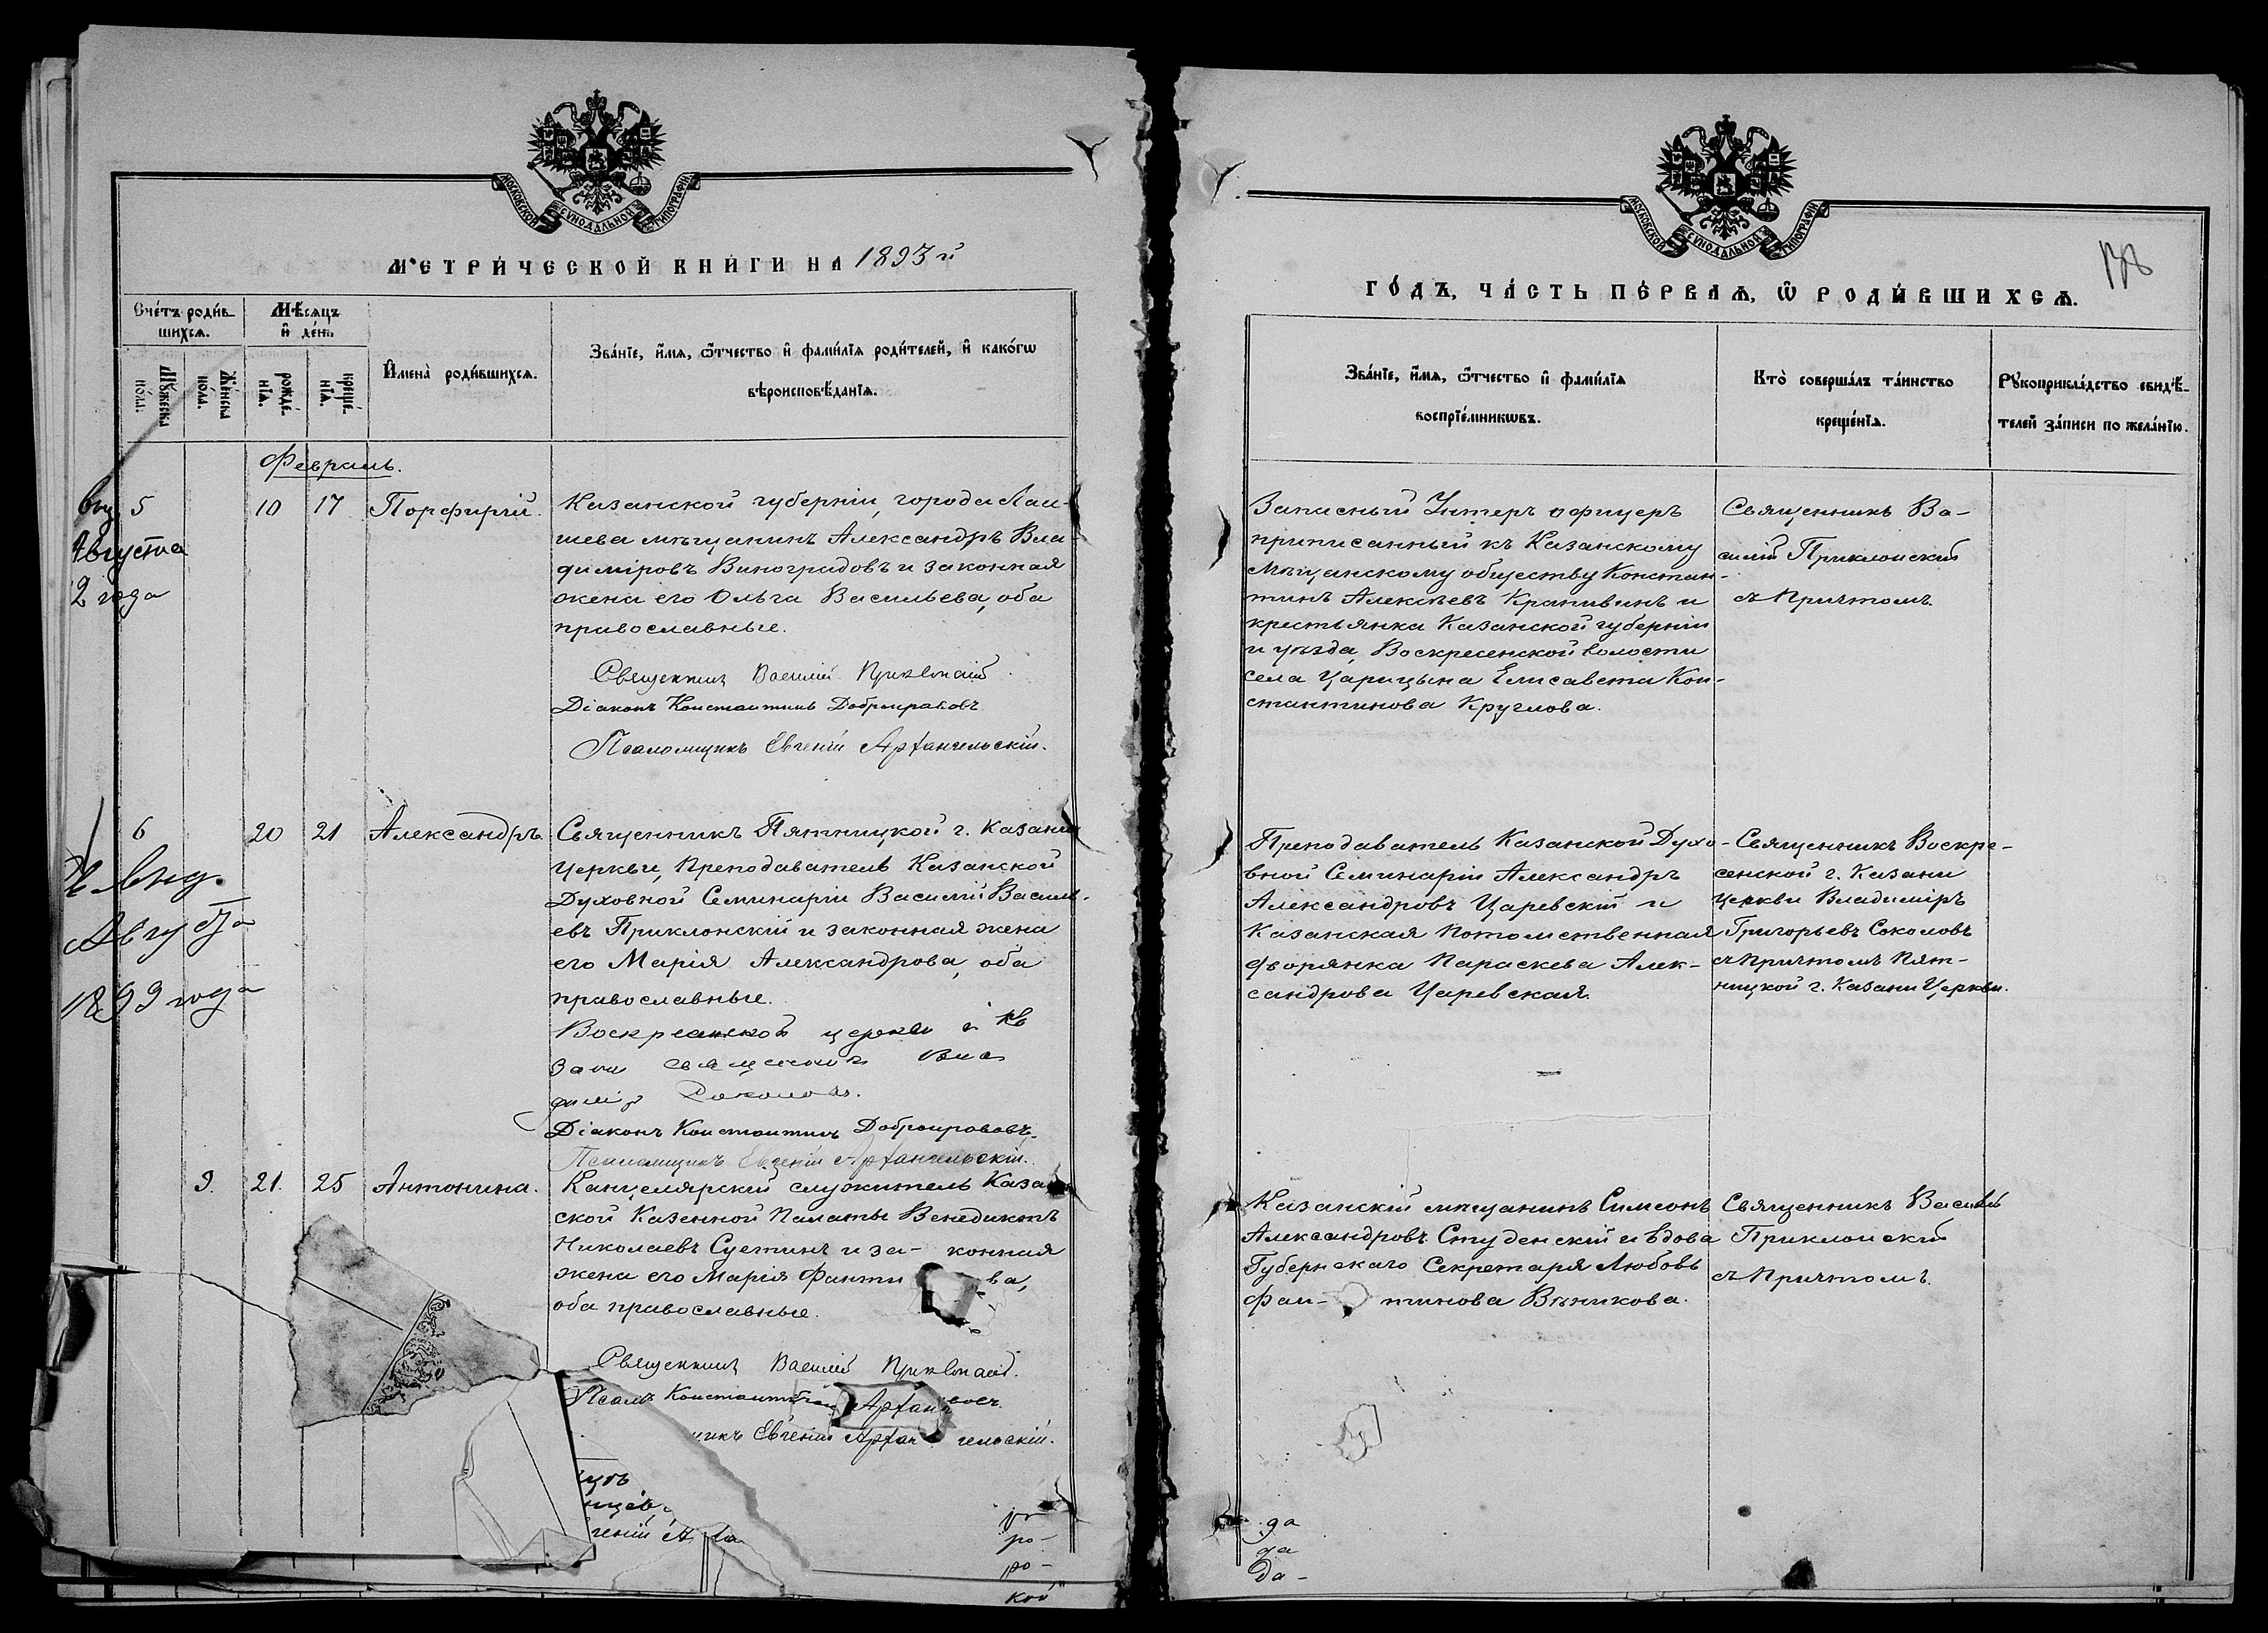 МОСКОВСКОЙ СѴНОДАЛЬНОЙ ТИПОГРАФІИ
МЕТРИ́ЧЕСКОЙ КНИ́ГИ НА 1893 й
Сче́тъ роди́в-
шихсѧ.
Мѣ́сѧцъ
и҆ де́нь
Мꙋ́жеска
по́ла.
Же́нска
по́ла.
рожде́-
нїѧ.
креще́-
нїѧ.
И҆мена̀ роди́вшихсѧ.
Зва́нїе, и҆́мѧ, ѻ҆́тчество и҆ фамі́лїѧ роди́телей, и҆ како́гѡ
вѣроисповѣ́данїѧ.
Февраль.
5 10 17 Порфирій.
Августа
2 года
Казанской губерніи, города Лаи-
шева мѣщанинъ Александръ Вла-
диміровъ Виноградовъ и законная
жена его Ольга Васильева, оба
православные.
Священникъ Василій Приклонскій
Діаконъ Константинъ Добронравовъ
Псаломщикъ Евгеній Архангельскій.
6 20 21 Александръ.
Августа
1899 года
Священникъ Пятницкой г. Казани
Церкви, Преподаватель Казанской
Духовной Семинаріи Василій Василь-
евъ Приклонскій и законная жена
его Марія Александрова, оба
православные.
Воскресенской церкви г. Ка
зани священникъ Вла
димір Соколовъ.
Діаконъ Константинъ Добронравовъ.
Псаломщикъ Евгеній Архангельскій.
9. 21. 25 Антонина.
Канцелярскій служитель Казан
ской Казенной Палаты Венедиктъ
Николаевъ Суетинъ и за- конная
жена его Марія Фанти ва,
оба православные.
Священникъ Василій Приклонскій.
Псалъ Константинъ Архан вовъ
щикъ Евгеній Архан гельскій.
геній А
ро-
ро-
кой
МОСКОВСКОЙ СѴНОДАЛЬНОЙ ТИПОГРАФІИ
ГО́ДЪ, ЧА́СТЬ ПЕ́РВАѦ, Ѡ҆ РОДИ́ВШИХСѦ.
Зва́нїе, и҆́мѧ, ѻ҆́тчество и҆ фамі́лїѧ
воспрїе́мникѡвъ.
Кто̀ соверша́лъ та́инство
креще́нїѧ.
Рꙋкоприкла́дство свидѣ́-
телей за́писи по жела́нїю.
Запасный Унтеръ офицеръ
приписанный къ Казанскому
Мѣщанскому обществу Констан-
тинъ Алексѣевъ Крапивинъ и
крестьянка Казанской губерніи
и уѣзда, Воскресенской волости
села Царицына Елисавета Кон-
стантинова Круглова.
Священникъ Ва-
силій Приклонскій
съ Причтомъ.
Преподаватель Казанской Духо-
вной Семинаріи Александръ
Александровъ Царевскій и
Казанская потомственная
дворянка Параскева Алек-
сандрова Царевская.
Священникъ Воскре-
сенской г. Казани
церкви Владиміръ
Григорьевъ Соколовъ
съ Причтомъ Пят-
ницкой г. Казани Церкви.
Казанскій мѣщанинъ Симеонъ
Александровъ Студенскій и вдова
Губернскаго Секретаря Любовь
Фан- тинова Вѣникова.
Священникъ Василій
Приклонскій
съ Причтомъ.
да
да
да-